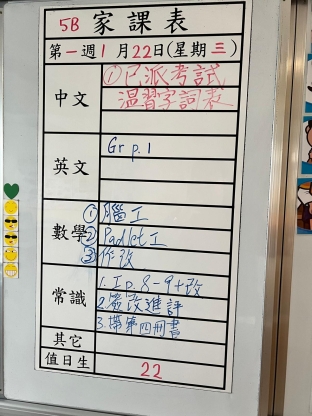 5B 家課表
第一週1月22日(星期三)
中文
①已派考試
溫習字詞表
英文
Gr p.1
數學
①腦工
②Padlet工
③作改
常識
1. Ip.8-9+改
2. 簽改進評
3. 帶第四冊書
其它
值日生
22